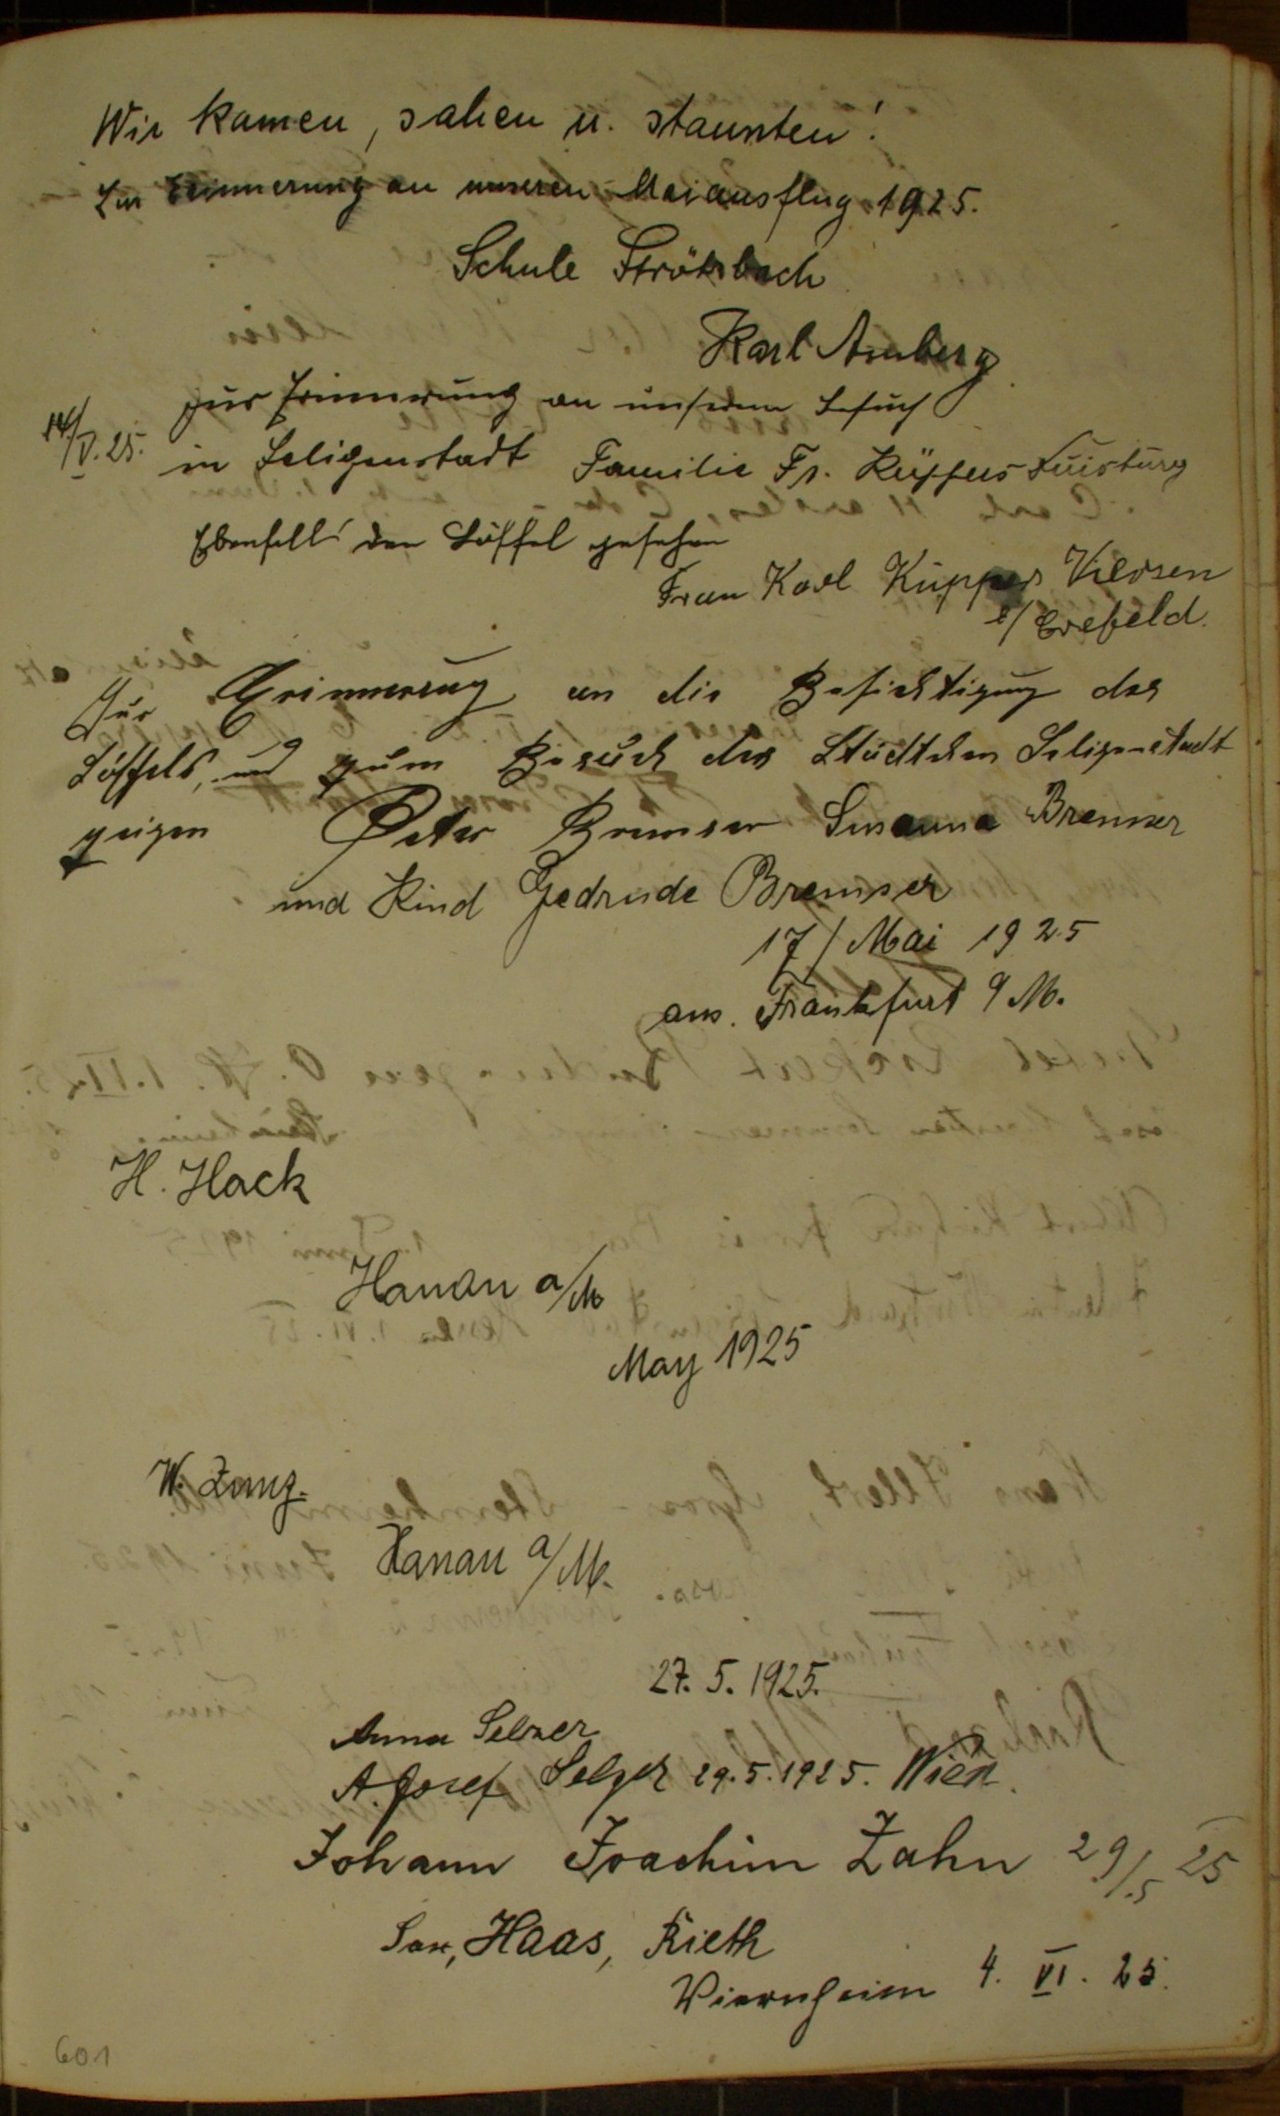 Wir kamen, sahen u. staunten!
Zur Erinnerung an unseren Maiausflug 1925.
Schule Strötzbach
Karl Amberg
14/V.25.
zur Erinnerung an unseren Besuch
in Seligenstadt Familie Fr. Küppers Duisburg
Ebenfalls den Löffel gesehen
Frau Karl Küppers Viersen
b/ Crefeld.
Zur Erinnerung an die Besichtigung des
Löffels, und zum Besuch des Städtchen Seligenstadt
zeigen Peter Bremser Susanna Bremser
und Kind Gedrude Bremser
17/ Mai 1925
aus. Frankfurt a M.
H. Hack
Hanau a/M
May 1925
W. Zung.
Hanau a/M.
27. 5. 1925.
Anna Selzer
A. Josef Selzer 29.5.1925. Wien.
Johann Joachim Zahn 29/.5 25
Sax, Haas, Rieth
Viernheim 4. VI. 25.
601